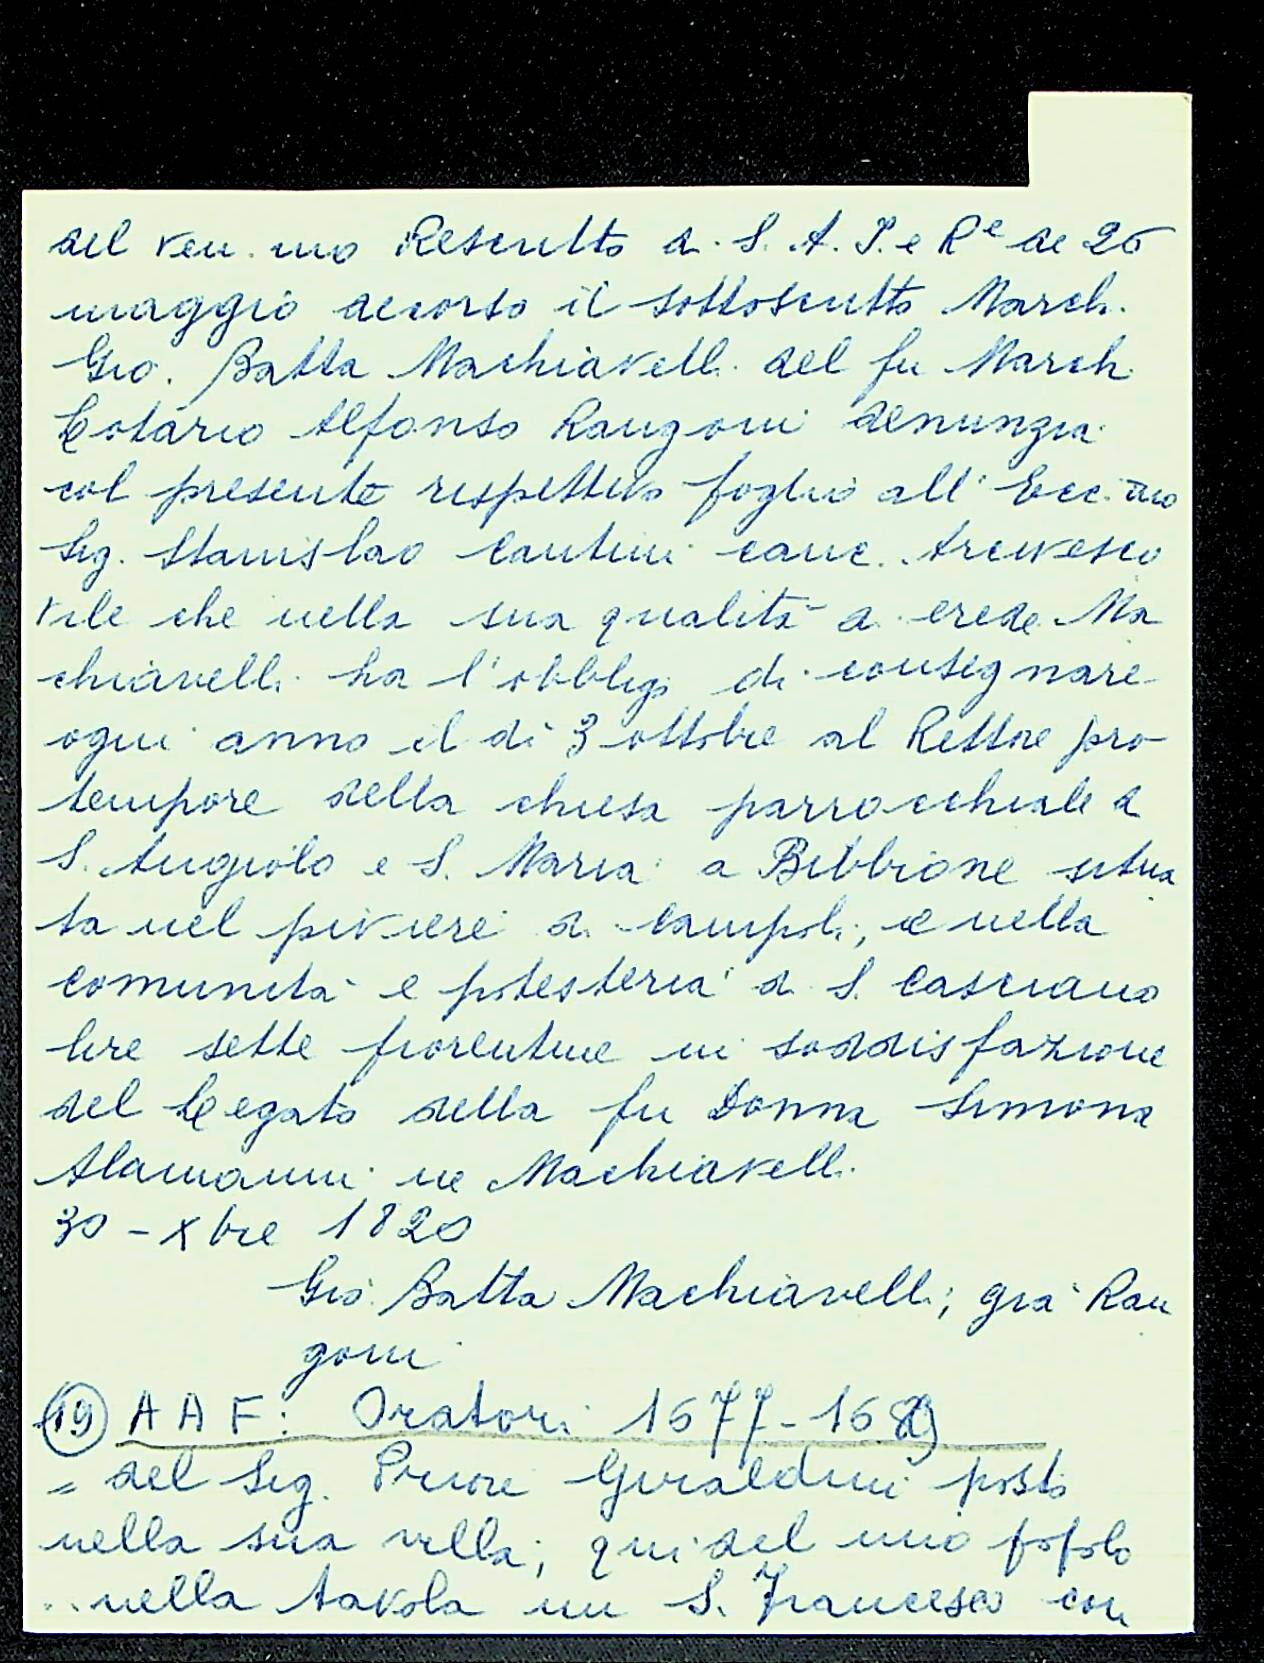 del ven.mo Rescritto di S. A. I. e Re de 26
maggio decorso il sottoscritto March.
Gio. Batta Machiavelli del fu March.
Lotario Alfonso Rangoni denunzia
col presente respettivo foglio all' Ecc.mo
Sig. Stanislao Cantini canc. Arcivesco
vile che nella sua qualità di erede Ma
chiavelli ha l'obbligo di consegnare
ogni anno il dì 3 ottobre al Rettore pro-
tempore della chiesa parrocchiale di
S. Angiolo e S. Maria a Bibbione situa
ta nel piviere di Campoli, e nella
comunità e potesteria di S. Casciano
lire sette fiorentine in soddisfazione
del Legato della fu Donna Simona
Alamanni ne Machiavelli.
30 - Xbre 1820
Gio. Batta Machiavelli, già Ran
goni
(19) AAF: Oratori 1677-1689
= del Sig. Priore Giraldini posto
nella sua villa, qui del mio popolo
.. nella tavola un S. Francesco con